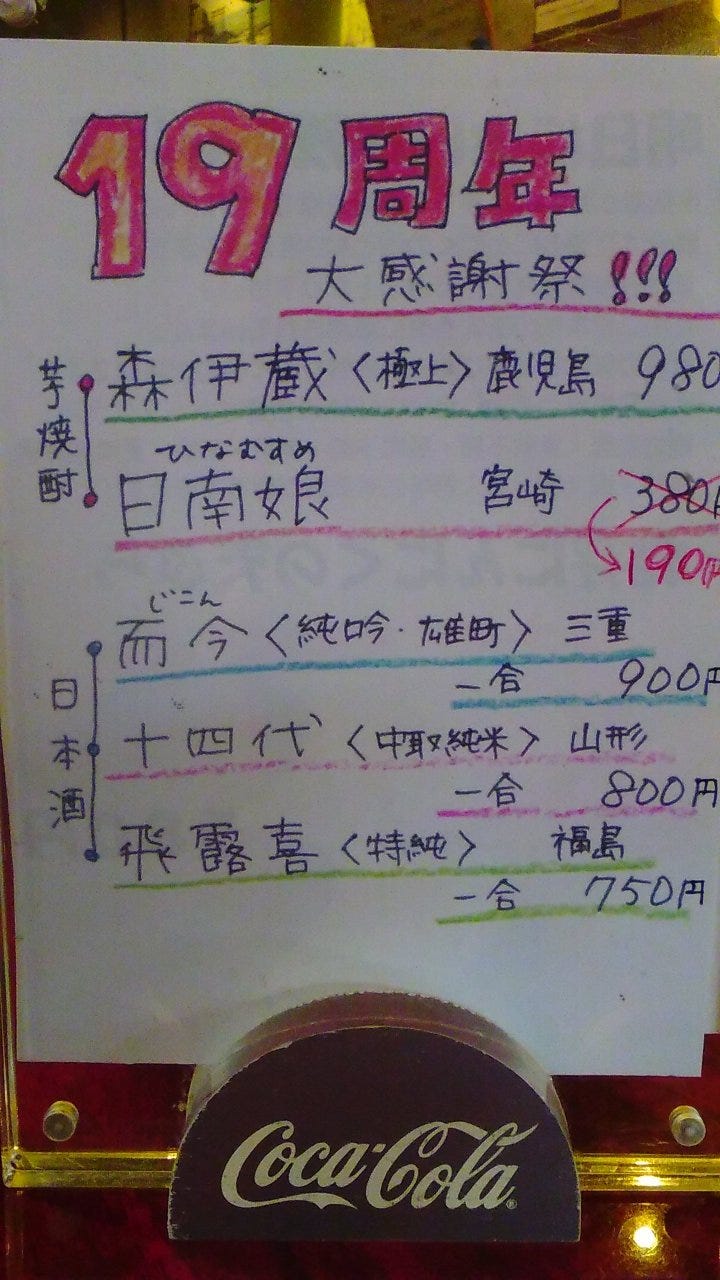 19周年
大感謝祭!!!
芋焼酎
森伊蔵〈極上〉鹿児島 980
ひなむすめ
日南娘 宮崎 380円
190円
日本酒
じこん
而今〈純吟・雄町〉三重
一合 900円
十四代〈中取純米〉山形
一合 800円
飛露喜〈特純〉 福島
一合 750円
Coca-Cola